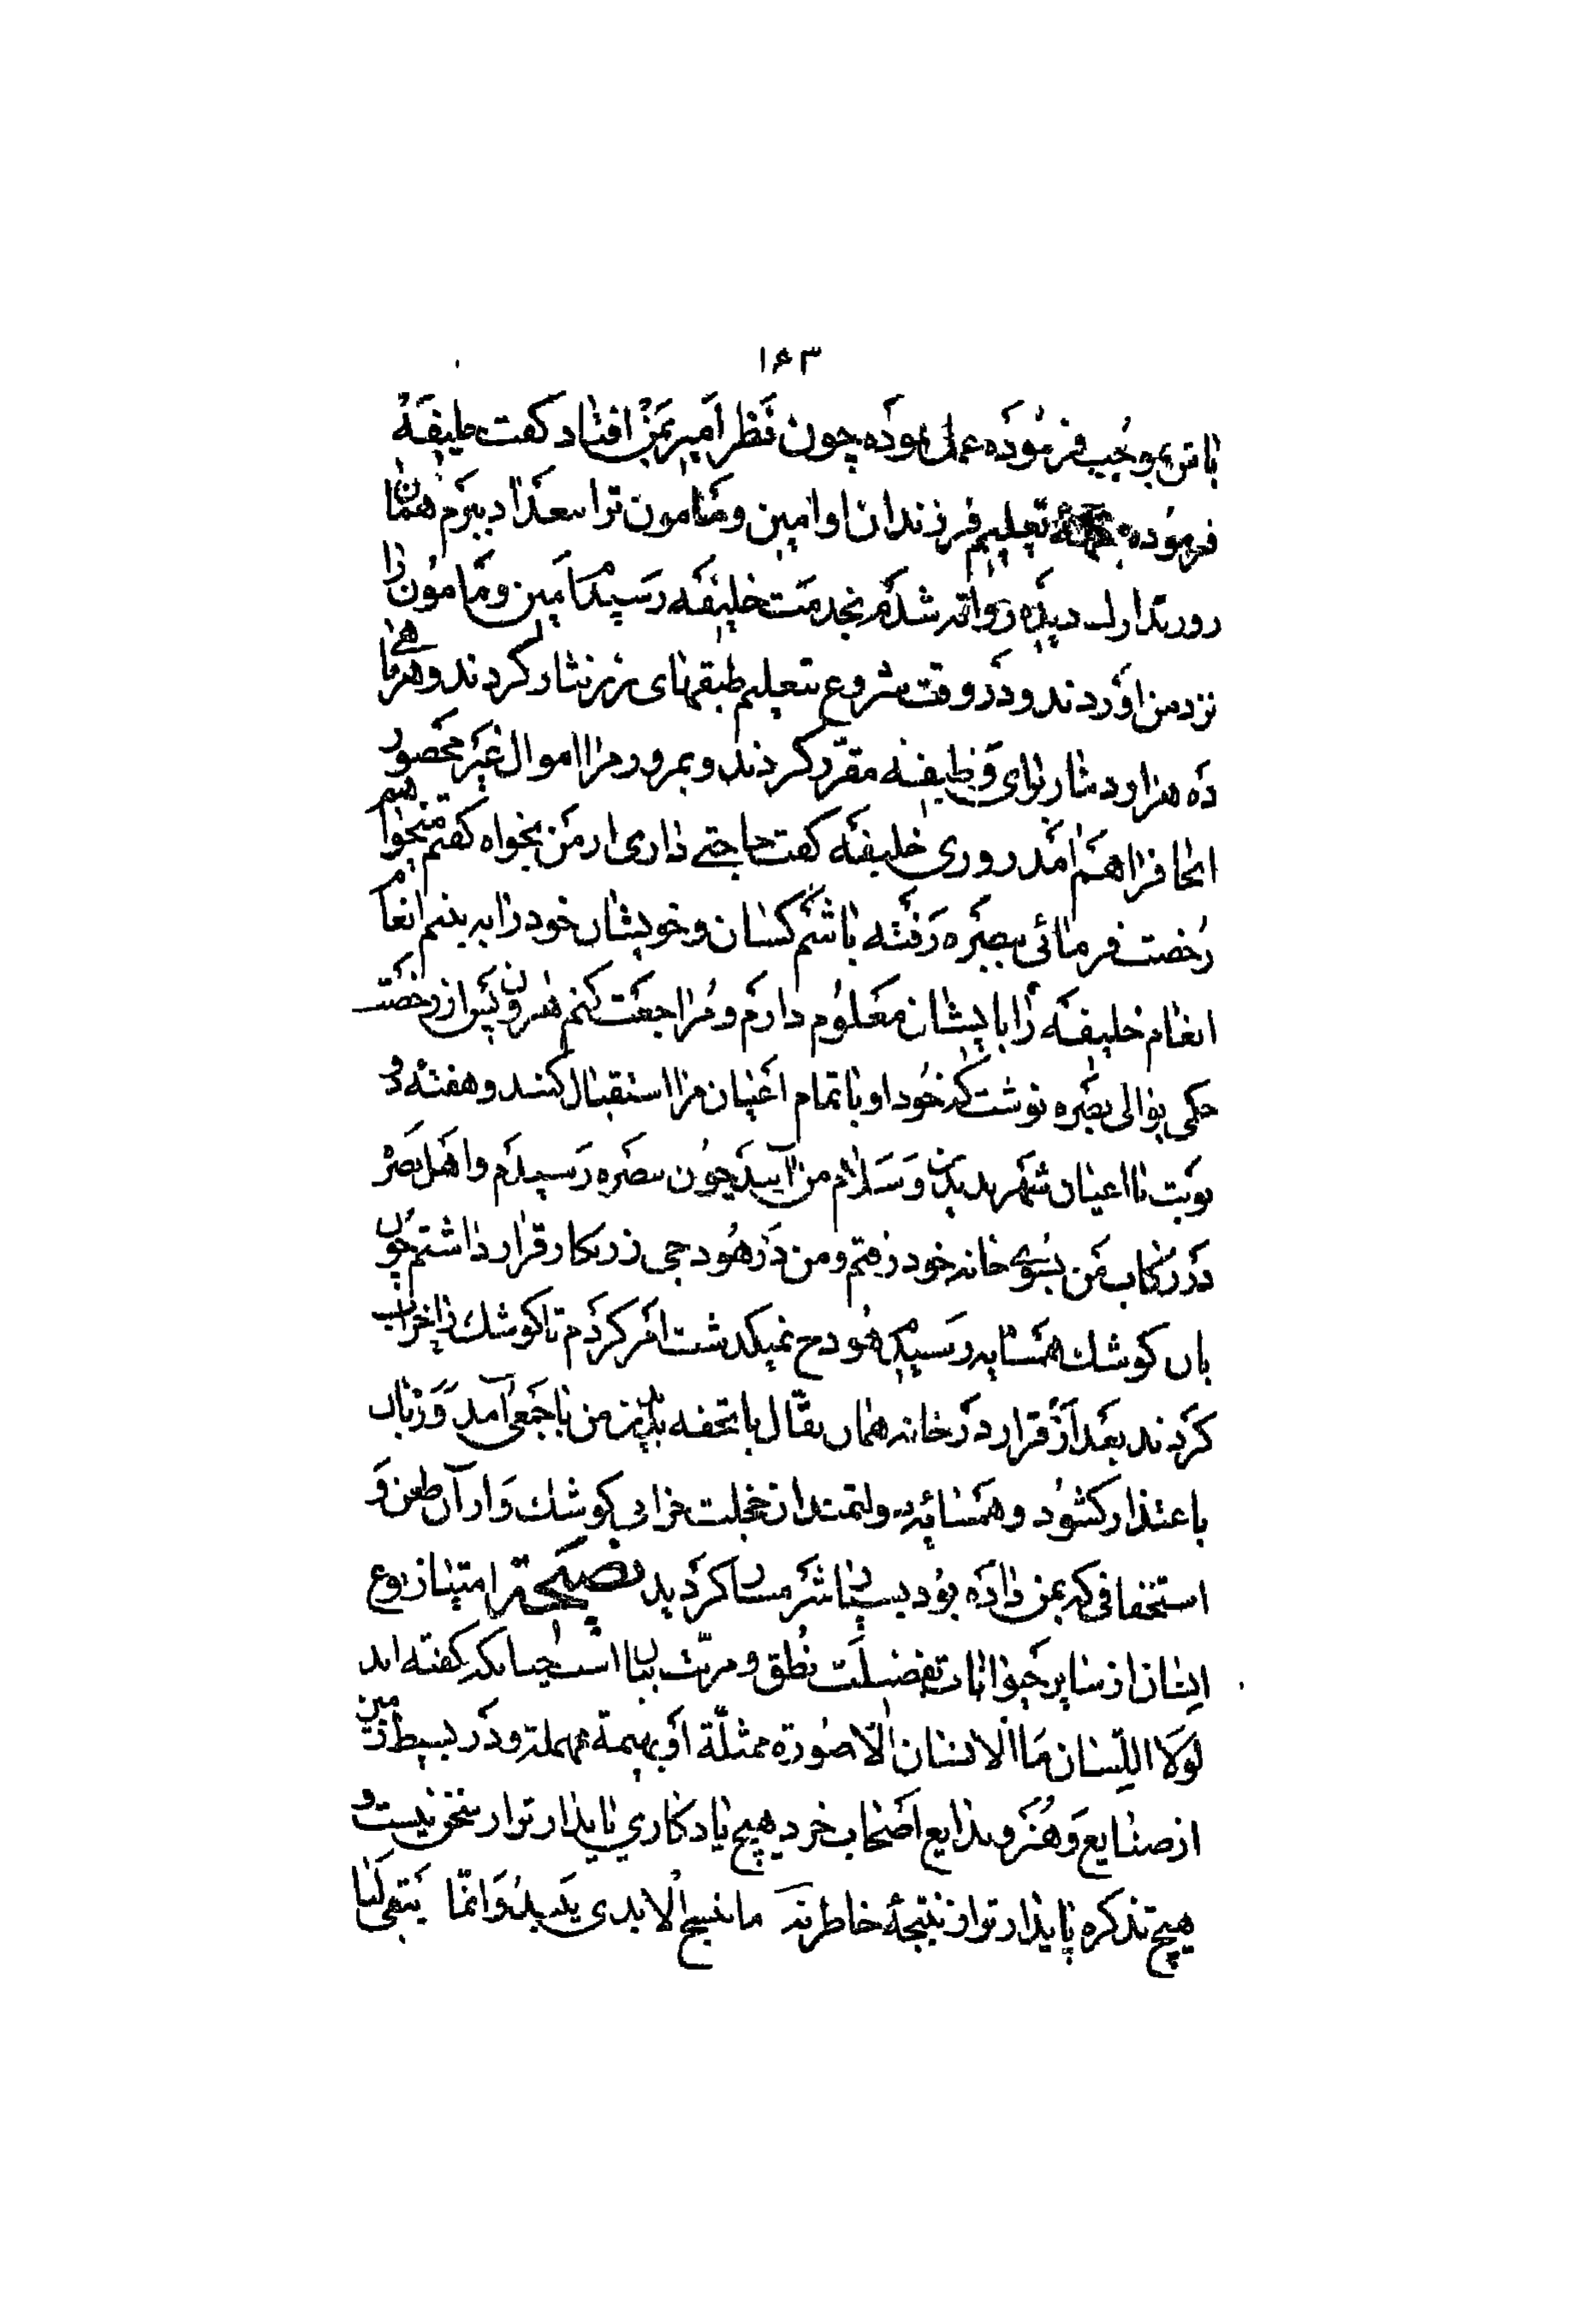 ۱۶۳
باش بموجب فرموده عمل نموده چون نظر امیر بمن افتاد کفت خلیفه
فرموده بجههٔ تعلیم فرزندان او امین و مامون ترا ببغداد ببرم همان
روز بغداد روانه شدم بخدمت خلیفه رسیدم امین و مامون را
نزد من اوردند و در وقت شروع بتعلیم طبقهای زر نثار کردند و هر ماهی
ده هزار دینار برای وظیفه مقرر کردند و بمرور مرا اموال غیر محصور
انجا فراهم امد روزی خلیفه کفت حاجتی داری از من بخواه کفتم میخواهم
رخصت فرمائی ببصره رفته باشم کسان و خویشان خود را به بینم
انعام خلیفه را بایشان معلوم دارم و مراجعت کنم هرون پس از رخصت
حکمی بوالی بصره نوشت که خود او با تمام اعیان مرا استقبال کنند و هفتهٔ دو
نوبت با اعیان شهر بدیدن و سلام من آیند چون ببصره رسیدم و اهل بصره
در رکاب من بسوی خانه خود رفتم و من در هودجی زرنکار قرار داشتم چون
بان کوشك همسایه رسیدم هودج نمیکذشت امر کردم تا کوشك را خراب
کردند بعد از قرار در خانه همان بقال با تحفه بدیدن من با جمعی آمد و زبان
باعتذار کشود و همسایه دولتمند از خجلت خرابی کوشك و از آن طعن و
استخفافی که بمن داده بود بسیار شرمسار کردید نصیحة امتیاز نوع
انسان از سایر حیوانات بفضیلت نطق و مزیت بیان است چنانکه کفته اند
لولا اللسان ما الانسان الا صورة ممثلة او بهیمة مهملة و در بسیط زمین
از صنایع و هنر و بدایع اصحاب خرد هیچ یادکاری پایدار تر از سخن نیست و
هیچ تذکره پایدار تر از نتیجهٔ خاطر نه ما نسج الایدی یبید و انما یبقی لنا